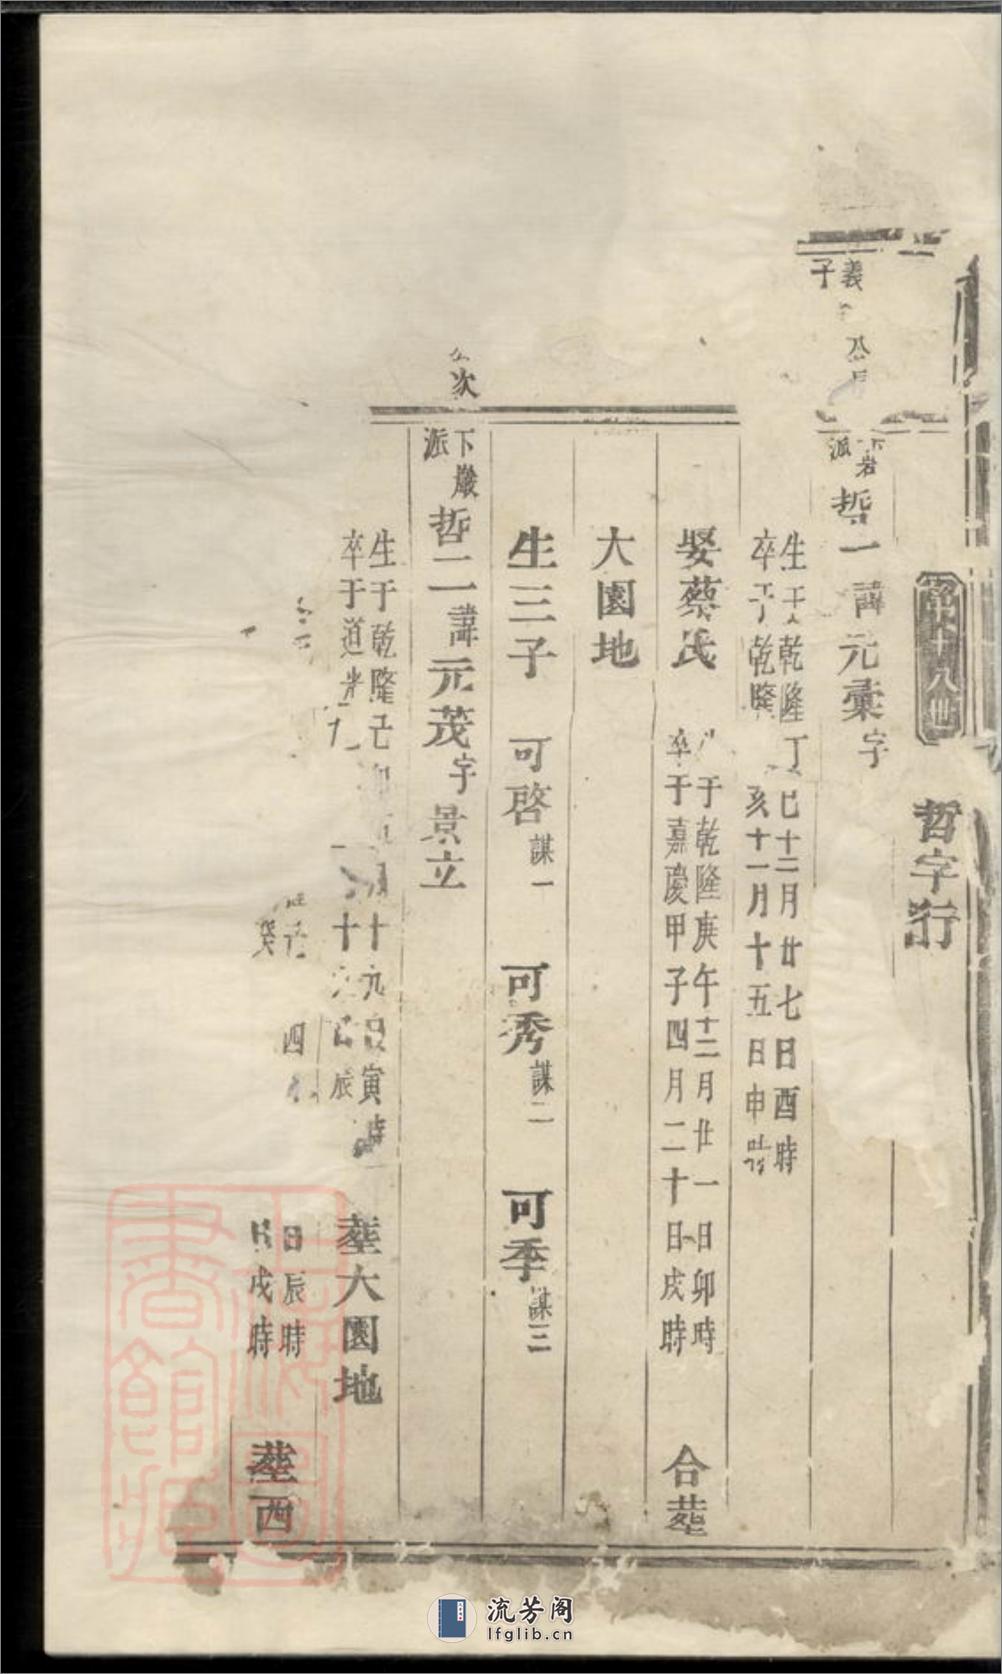 十八世 哲字行
義 公
子
下岩派 哲一 諱元彙字
生于乾隆丁巳十二月廿七日酉時
卒于乾隆 亥十一月十五日申時
娶蔡氏
于乾隆庚午十二月廿一日卯時
卒于嘉慶甲子四月二十日戌時
合塟
大園地
生三子 可啓謀一 可秀謀二 可季謀三
次
下巖派 哲二 諱元茂字景立
生于乾隆己卯 月十九日寅時
卒于道光 十 日辰
塟大園地
四 日辰時
癸 戌時
塟西
上海圖書館藏
流芳阁
lfglib.cn